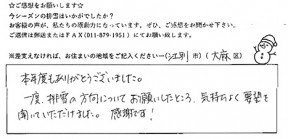 ☆ご感想をお願いします☆
今シーズンの排雪はいかがでしたか?
お客様の声が、私たちの原動力になっています。ぜひ、ご感想をお聞かせ下さい。
ご感想は郵送またはFAX(011-879-1951)にてお願い致します。
※差支えなければ、お住まいの地域をご記入ください…(江別 市)( 大麻 区)
本年度もありがとうございました。
一度、排雪の方向についてお願いしたところ、気持ちよく要望を
聞いていただけました。感謝です!